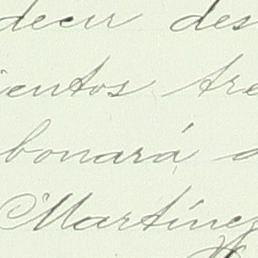 decir des
ientos tre
bonará a
Martínez